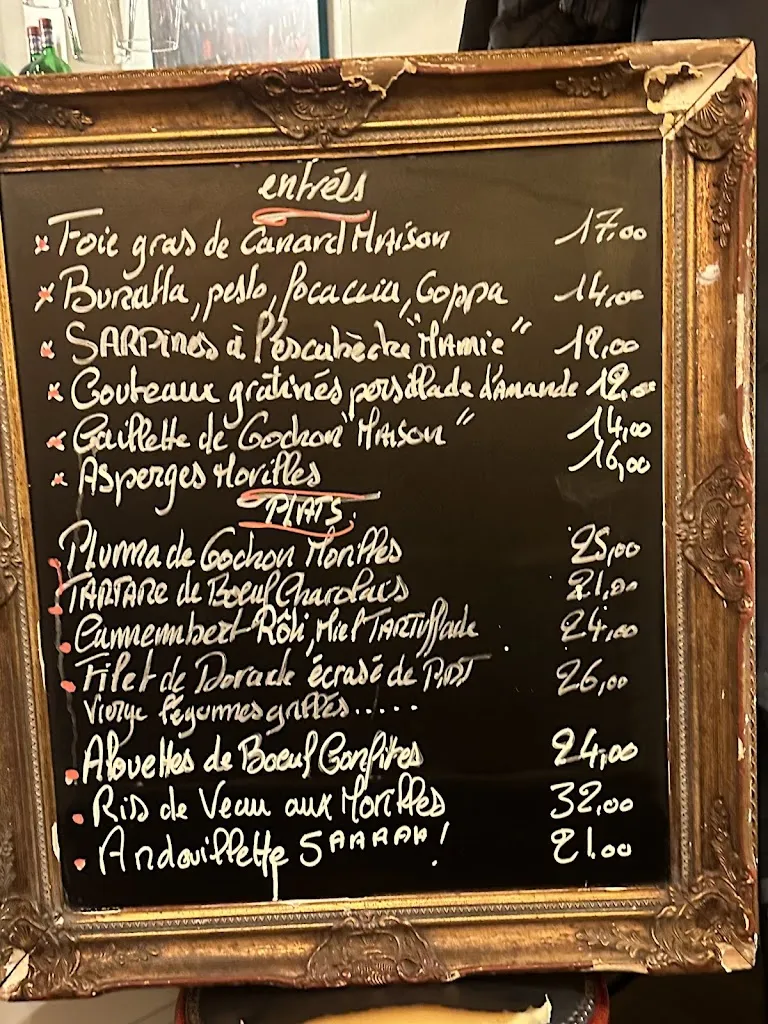 entrées
Foie gras de Canard Maison 17.00
Buratta, pesto, focaccia, Coppa 14,00
SARDINES à l'escabèche "MAMIE" 12,00
Couteaux gratinés persillade d'Amande 12,00
Caillette de Cochon "MAISON" 14,00
Asperges Morilles 16,00
PLATS.
Pluma de Cochon Morilles 25,00
TARTARE de Boeuf Charolais 21,00
Cammembert Rôti, Miel TARTuffade 24,00
Filet de Dorade écrasé de PDT 26,00
Vierge légumes grillés.....
Alouettes de Boeuf Confites 24,00
Ris de Veau aux Morilles 32,00
Andouillette 5AAAAA! 21.00